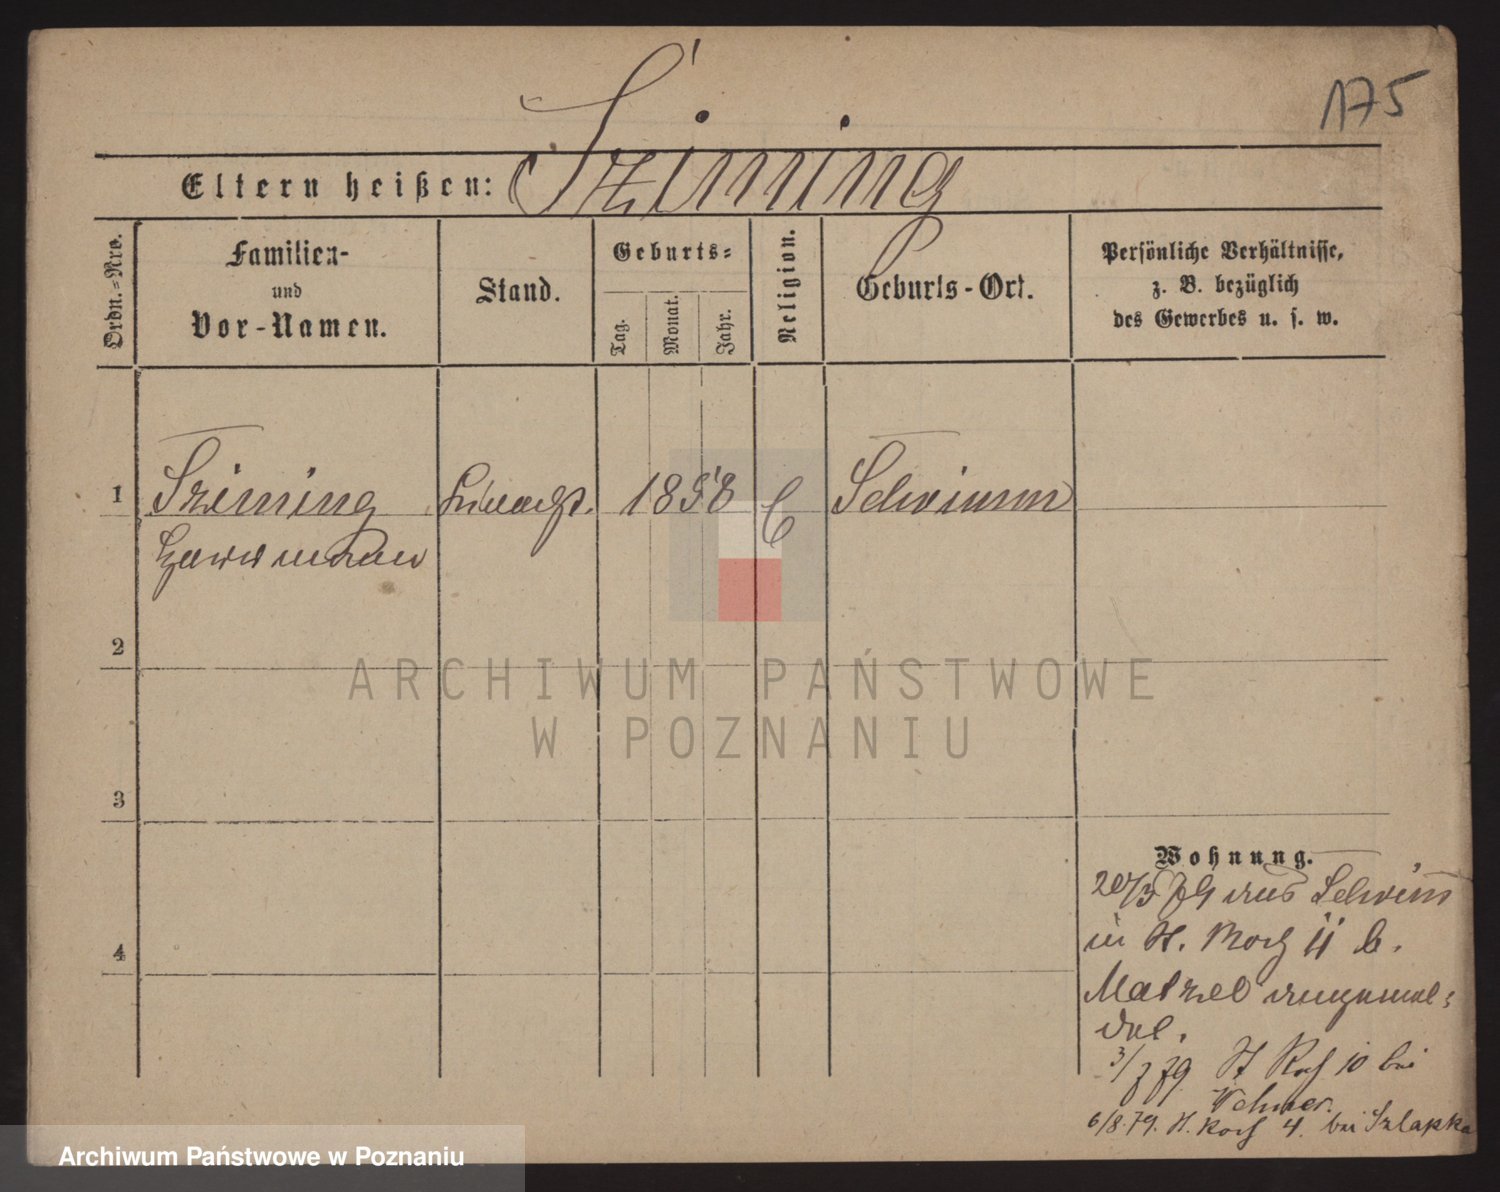 175
Eltern heißen: Sziming
Ordn.=Nro.
Familien-
und
Vor-Namen.
Stand.
Geburts=
Tag.
Monat.
Jahr.
Religion.
Geburts-Ort.
Persönliche Verhältnisse,
z. B. bezüglich
des Gewerbes u. s. w.
1 Sziming 1858 C Schrimm
2
ARCHIWUM PAŃSTWOWE
W POZNANIU
3
Wohnung.
20/5 79 aus Schrimm
4
in St. 11 b.
Matzel angemel=
det.
3/7 79 St 10 bei
6/8.79. St. 4. bei Szlapka
Archiwum Państwowe w Poznaniu